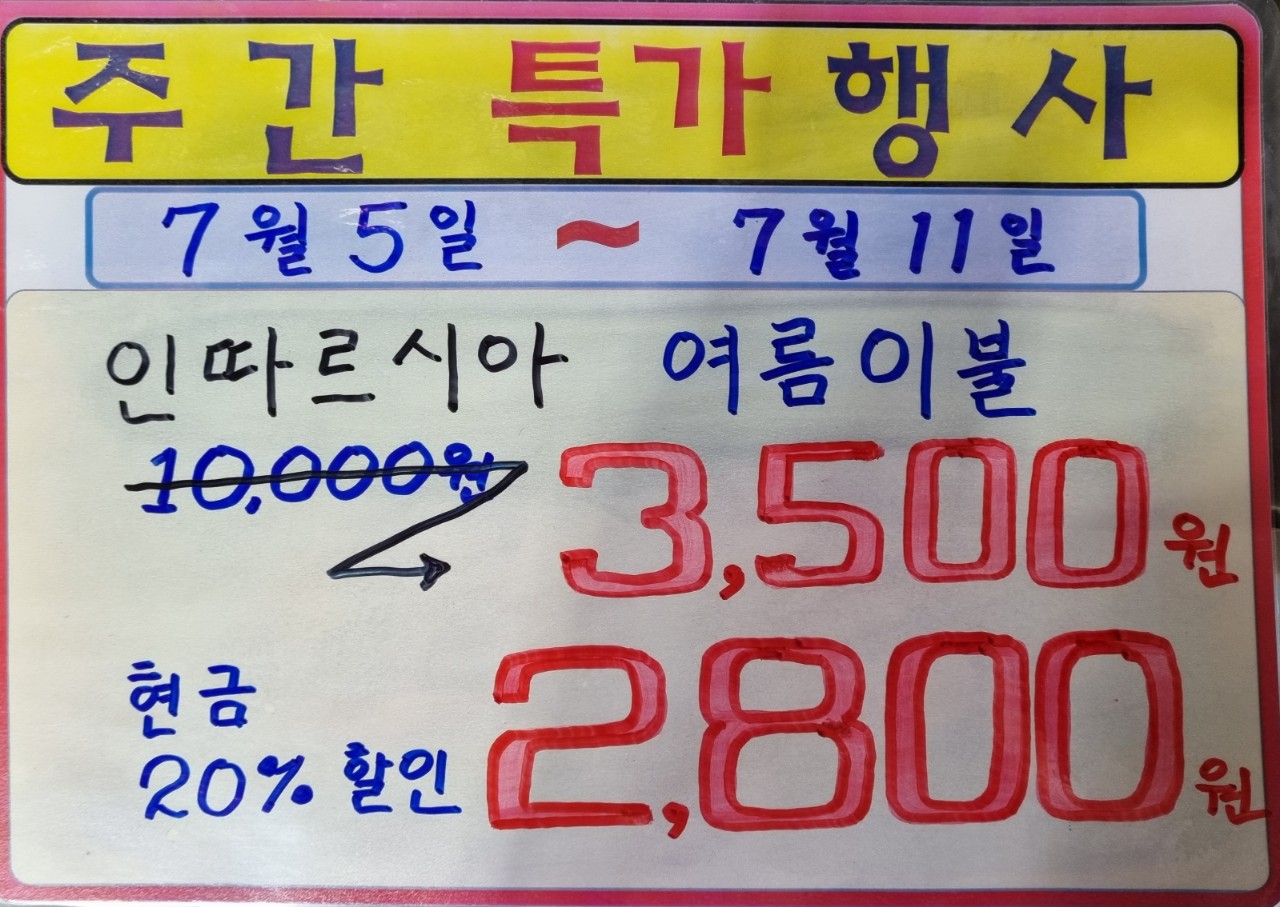 주간 특가행사
7월 5일 ~ 7월 11일
인따르시아 여름이불
10,000원 3,500원
현금
20% 할인 2,800원